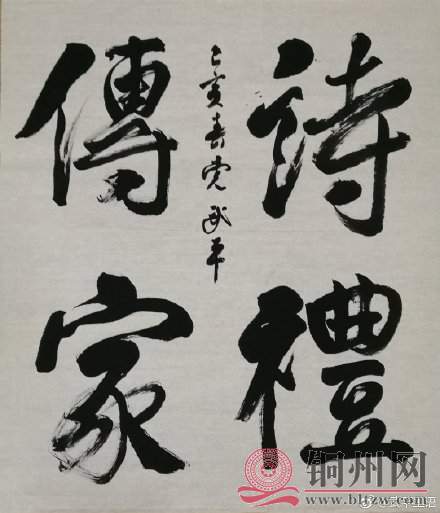 詩禮
傳家
己亥春党武平
铜州网
www.bllttzw.com